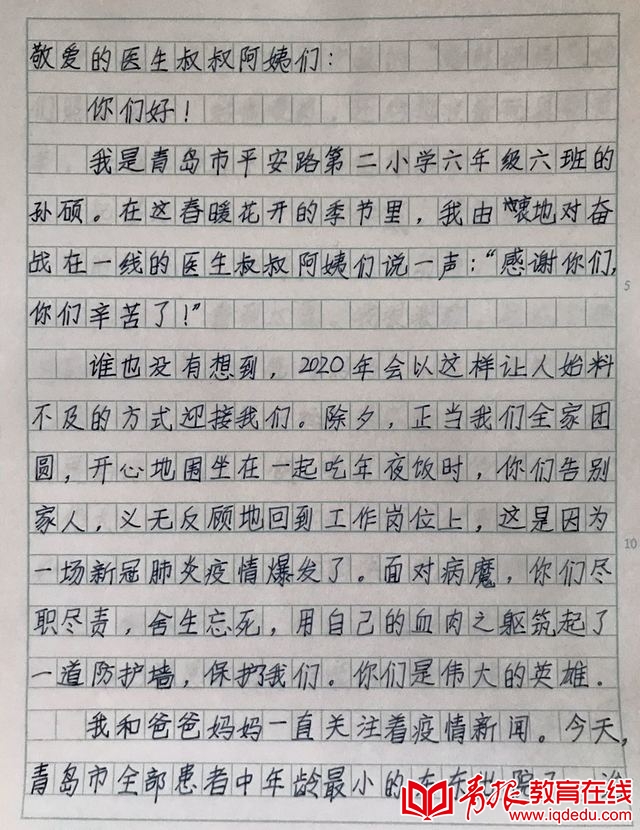 敬爱的医生叔叔阿姨们：
你们好！
我是青岛市平安路第二小学六年级六班的
孙硕。在这春暖花开的季节里，我由衷地对奋
战在一线的医生叔叔阿姨们说一声：“感谢你们，
你们辛苦了！”
谁也没有想到，2020年会以这样让人始料
不及的方式迎接我们。除夕，正当我们全家团
圆，开心地围坐在一起吃年夜饭时，你们告别
家人，义无反顾地回到工作岗位上，这是因为
一场新冠肺炎疫情爆发了。面对病魔，你们尽
职尽责，舍生忘死，用自己的血肉之躯筑起了
一道防护墙，保护了我们。你们是伟大的英雄．
我和爸爸妈妈一直关注着疫情新闻。今天，
青岛市全部患者中年龄最小的东东
5
10
青报教育在线
www.iqdedu.com